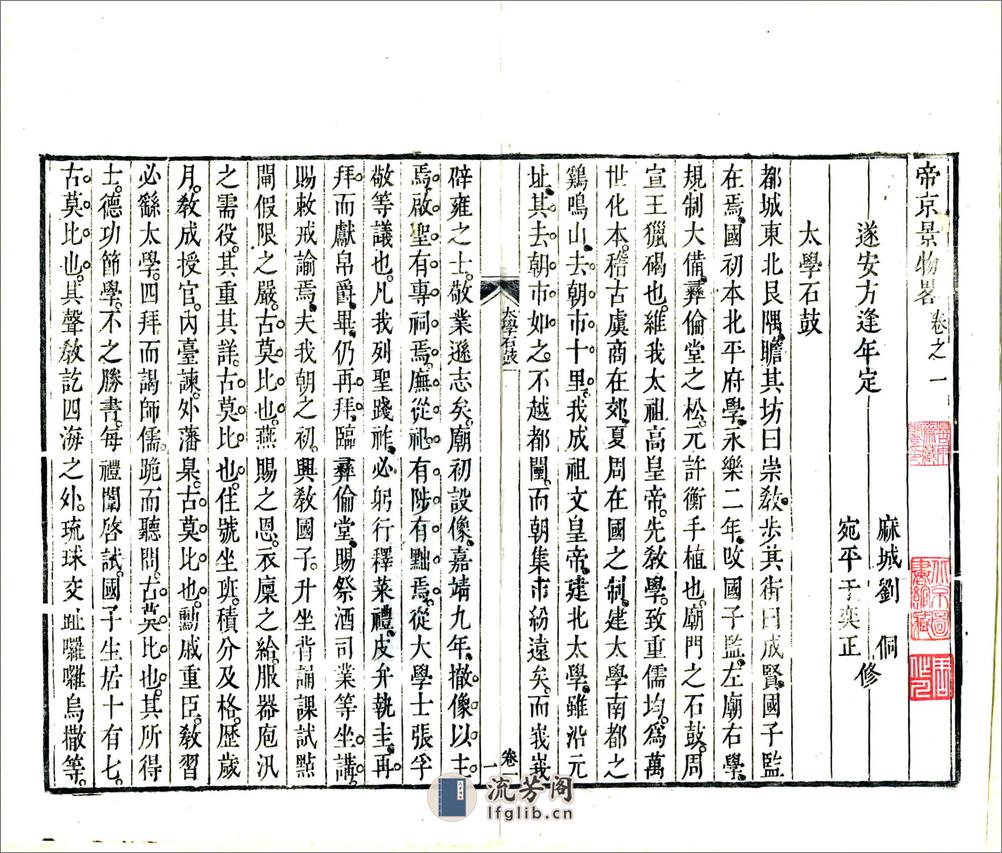 帝京景物畧卷之一
遂安方逢年定
麻城劉侗
宛平于奕正修
太學石鼓
都城東北艮隅瞻其坊曰崇教步其街曰成賢國子監
在焉國初本北平府學永樂二年改國子監左廟右學
規制大備彝倫堂之松元許衡手植也廟門之石鼓周
宣王獵碣也維我太祖高皇帝先教學致重儒均為萬
世化本稽古虞商在郊夏周在國之制建太學南都之
鷄鳴山去朝市十里我成祖文皇帝建北太學雖沿元
址其去朝市如之不越都闉而朝集市紛遠矣而峩峩
太學石鼓
卷一
一
辟雍之士敬業遜志矣廟初設像嘉靖九年撤像以主
焉啟聖有專祠焉廡從祀有陟有黜焉從大學士張孚
敬等議也凡我列聖踐祚必躬行釋菜禮皮弁執圭再
拜而獻帛爵畢仍再拜臨彝倫堂賜祭酒司業等坐講
賜敕戒諭焉夫我朝之初興教國子升坐背誦課試㸃
閘假限之嚴古莫比也燕賜之恩衣廩之給服器庖汛
之需役其重其詳古莫比也住號坐班積分及格歷歲
月教成授官內臺諫外藩臬古莫比也勳戚重臣教習
必繇太學四拜而謁師儒跪而聽問古莫比也其所得
士德功節學不之勝書每禮闈啓試國子生居十有七
古莫比也其聲教訖四海之外琉球交趾囉囉烏撒等
流芳閣
lfglib.cn